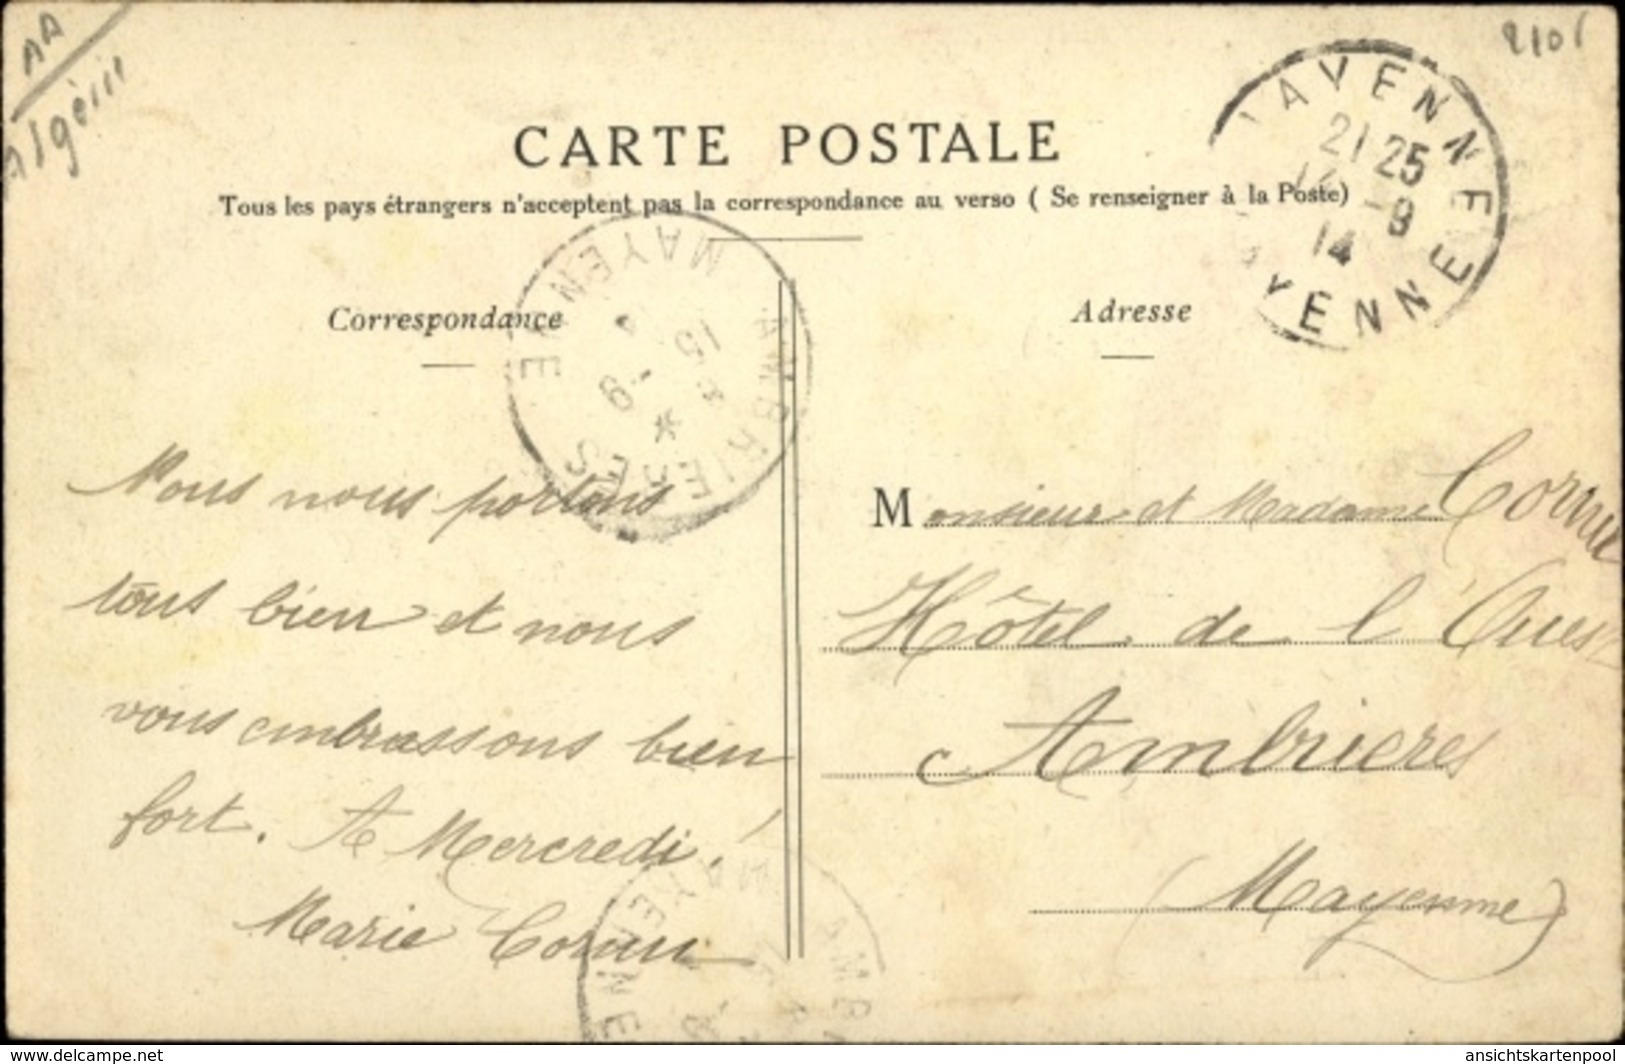 AA
Algérie
2101
CARTE POSTALE
Tous les pays étrangers n'acceptent pas la correspondance au verso ( Se renseigner à la Poste)
MAYENNE
21 25
12 -9
14
MAYENNE
Correspondance
Adresse
AMBRIERES
15 -9
14
MAYENNE
Nous nous portons
tous bien et nous
vous embrassons bien
fort. A Mercredi!
Marie Cornu
Monsieur et Madame Cornu
Hôtel de l'Ouest
Ambrieres
(Mayenne)
AMBR
MAYENNE
www.delcampe.net
ansichtskartenpool